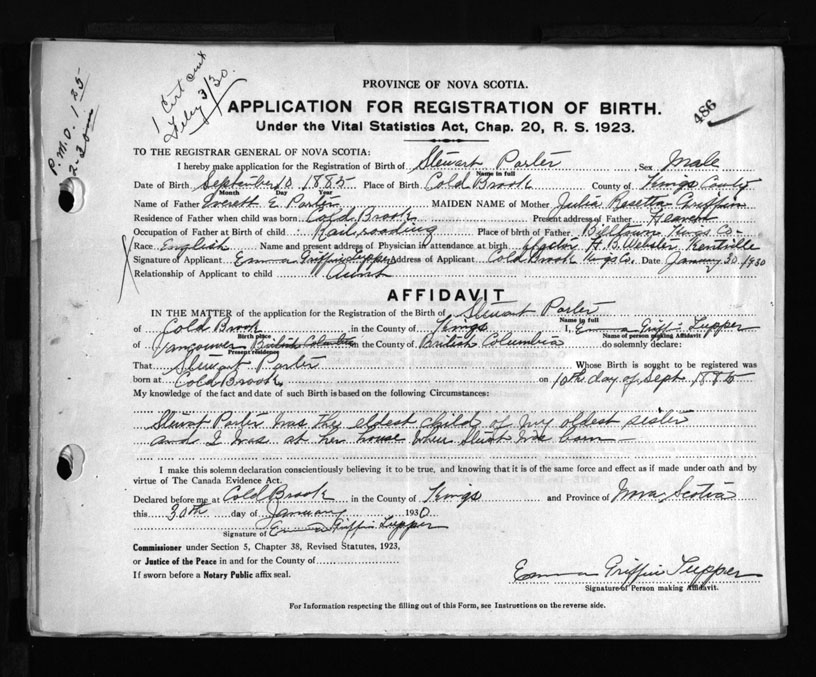 1 Cert sent
Feby 3/30.
P.M.O. 1.25
2-30
486
PROVINCE OF NOVA SCOTIA.
APPLICATION FOR REGISTRATION OF BIRTH.
Under the Vital Statistics Act, Chap. 20, R. S. 1923.
TO THE REGISTRAR GENERAL OF NOVA SCOTIA:
I hereby make application for the Registration of Birth of Stewart Porter Sex Male
Name in full
Date of Birth September 10 1885 Place of Birth Cold Brook County of Kings County
Month Day Year
Name of Father Everett E. Porter MAIDEN NAME of Mother Julia Rosetta Griffin
Residence of Father when child was born Cold Brook Present address of Father Heaven
Occupation of Father at Birth of child Railroading Place of birth of Father Billtown Kings Co.
Race English Name and present address of Physician in attendance at birth Doctor H. B. Webster, Kentville
Signature of Applicant Emma Griffin Tupper Address of Applicant Cold Brook Kings Co. Date January 30 1930
Relationship of Applicant to child Aunt
AFFIDAVIT
IN THE MATTER of the application for the Registration of the Birth of Stewart Porter
Name in full
of Cold Brook in the County of Kings I, Emma Griffin Tupper
Birth place Name of person making Affidavit
of Vancouver British Columbia in the County of British Columbia do solemnly declare:
Present residence
That Stewart Porter Whose Birth is sought to be registered was
born at Cold Brook on 10th day of Sept 1885
My knowledge of the fact and date of such Birth is based on the following Circumstances:
Stewart Porter was the eldest child of my oldest sister
and I was at her house when Stewart was born
I make this solemn declaration conscientiously believing it to be true, and knowing that it is of the same force and effect as if made under oath and by
virtue of The Canada Evidence Act.
Declared before me at Cold Brook in the County of Kings and Province of Nova Scotia
this 30th day of January 1930
Signature of Emma Griffin Tupper
Commissioner under Section 5, Chapter 38, Revised Statutes, 1923,
or Justice of the Peace in and for the County of
If sworn before a Notary Public affix seal.
Emma Griffin Tupper
Signature of Person making Affidavit.
For Information respecting the filling out of this Form, see Instructions on the reverse side.